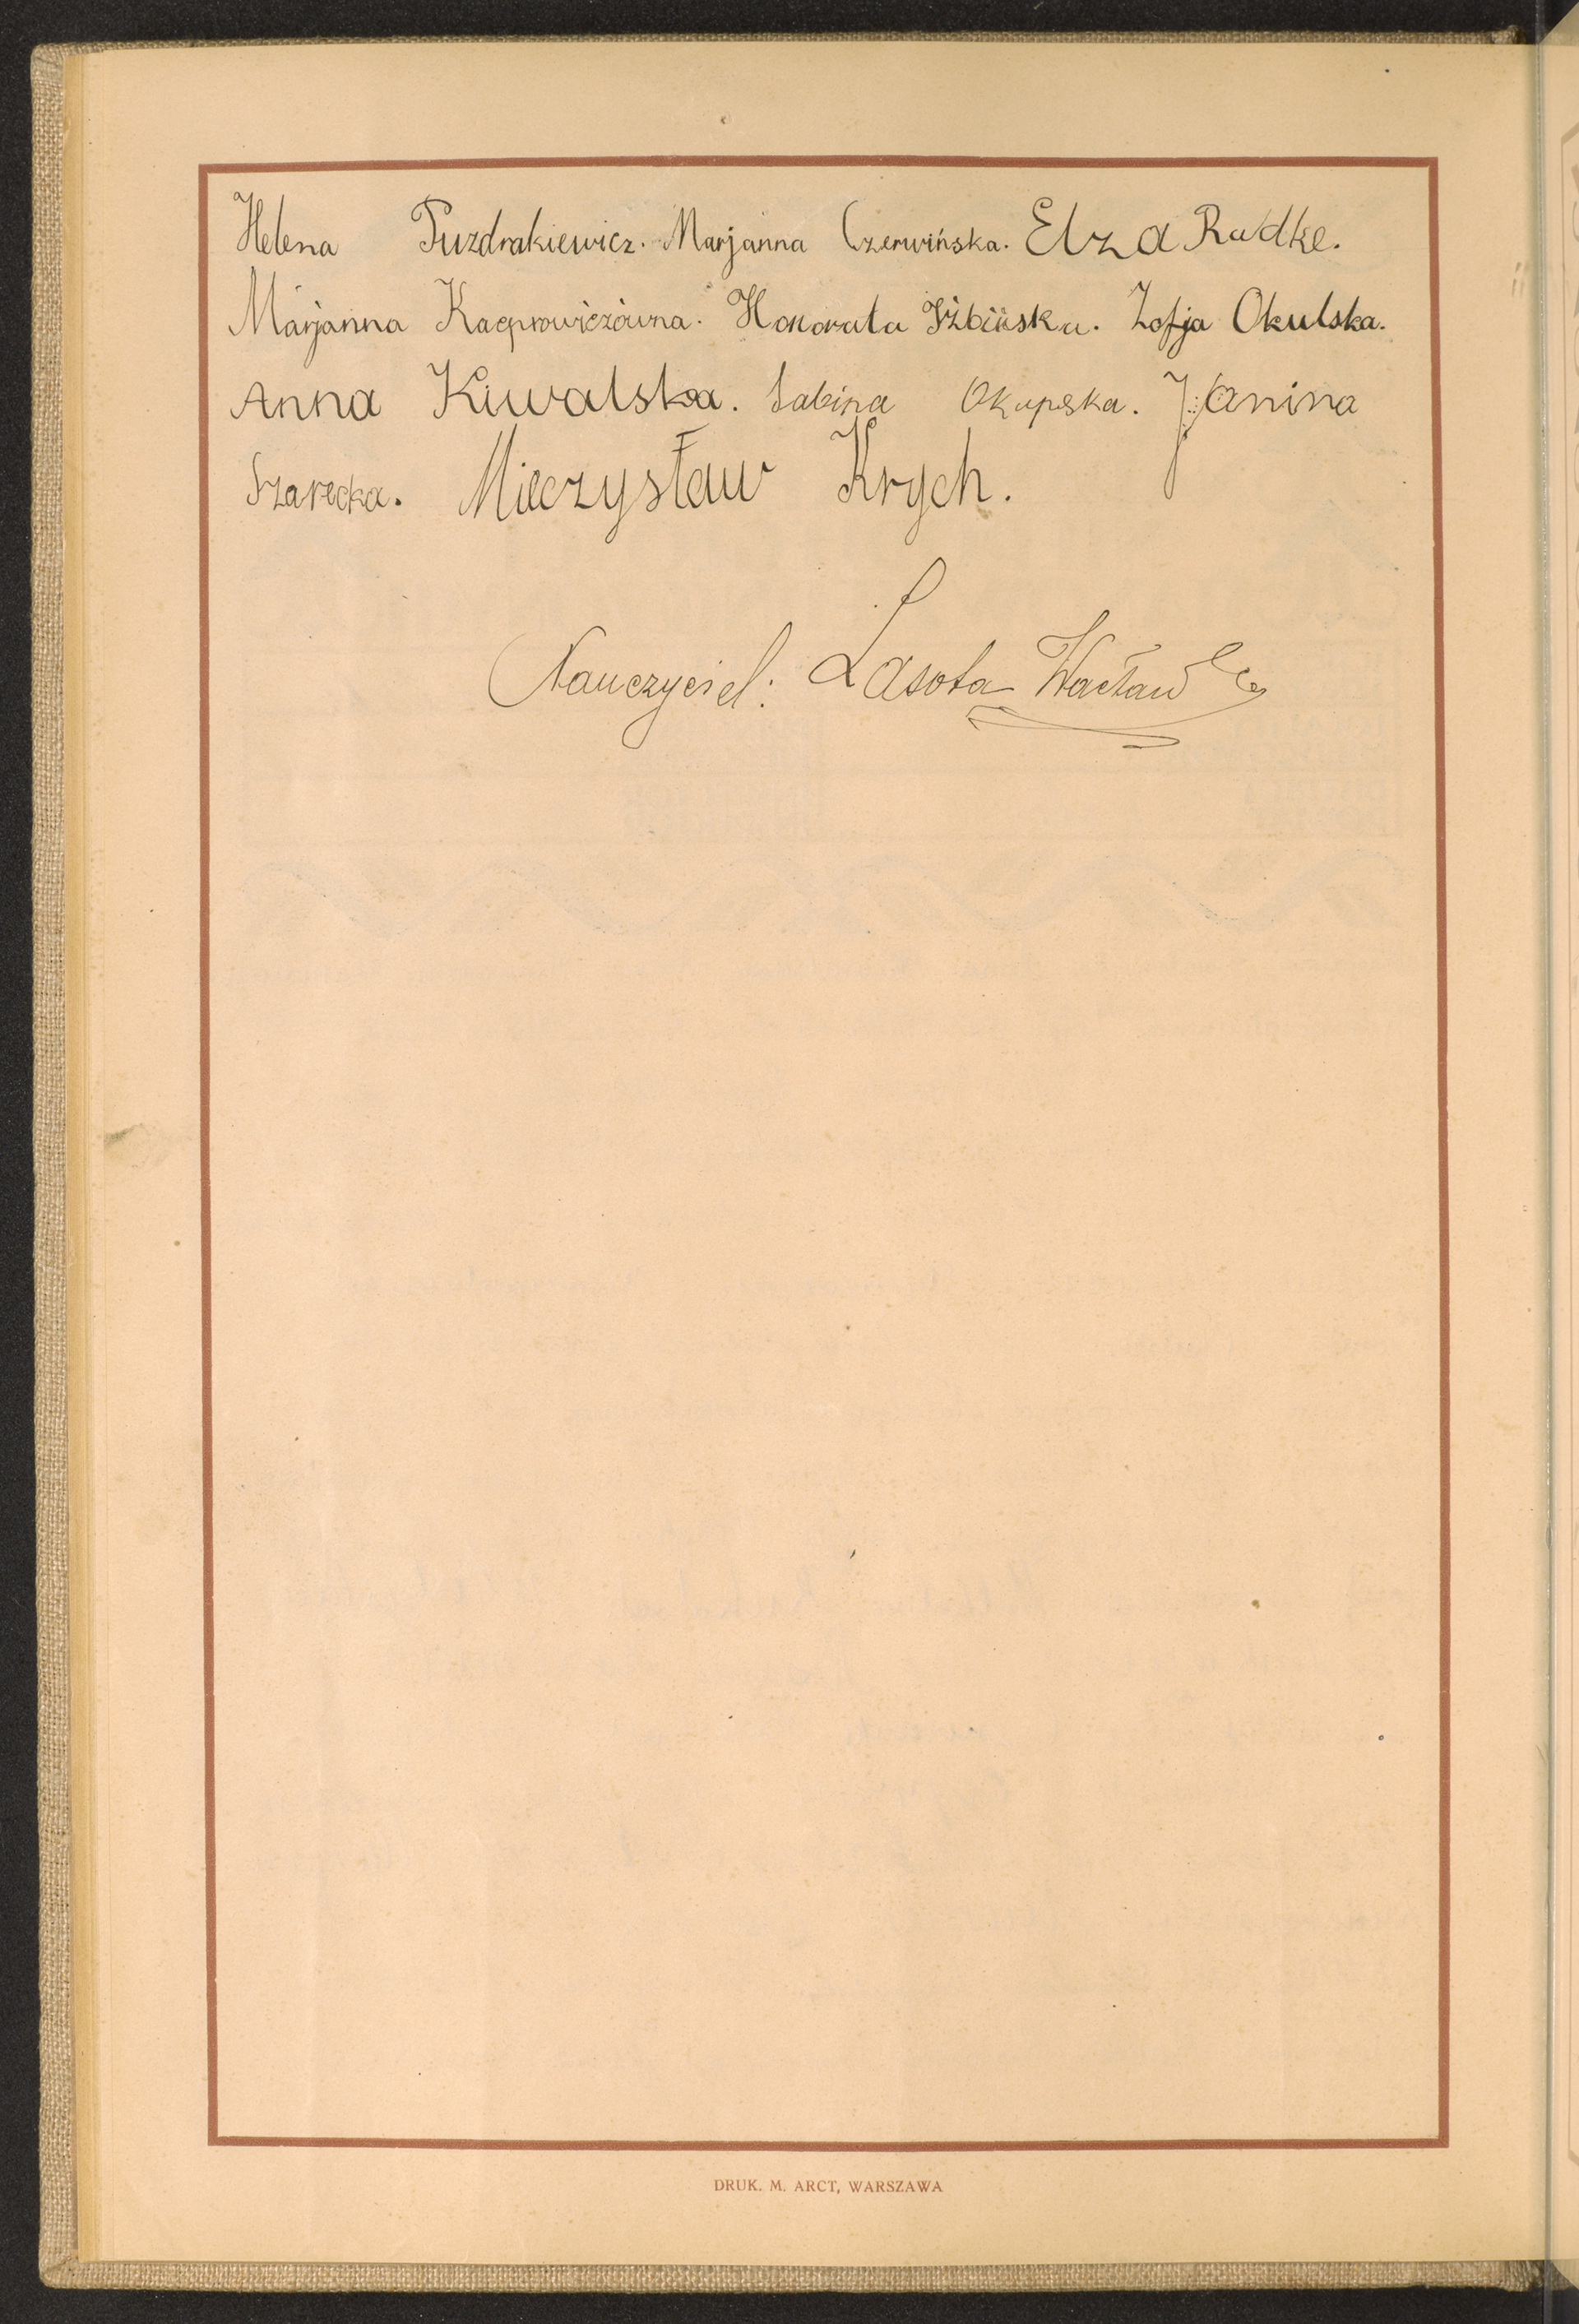 Helena Puzdrakiewicz. Marjanna Czerwińska. Elza Radke.
Marjanna Kacprowiczówna. Honorata Iżbińska. Zofja Okulska.
Anna Kuwalska. Sabina Okupska. Janina
Szarecka. Mieczysław Krych.
Nauczyciel: Lasota Wacław
DRUK. M. ARCT, WARSZAWA